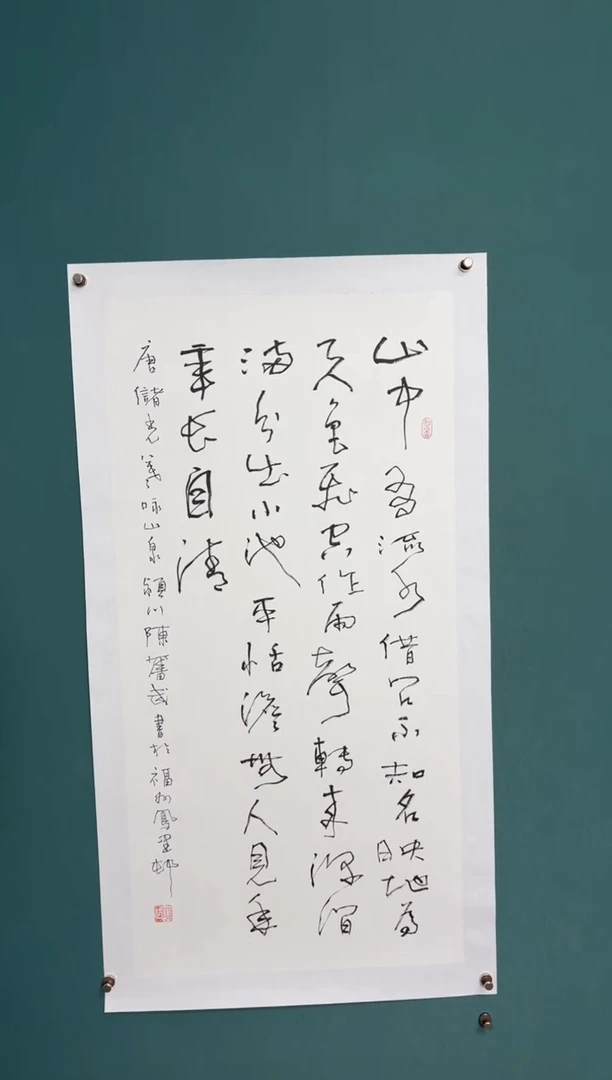 山中有流水借問不知名映地為
天色飛空作雨聲轉來深澗
滿分出小池平恬澹無人見年
年長自清
唐儲光羲咏山泉潁川陳奮武書於福州鳳凰邨